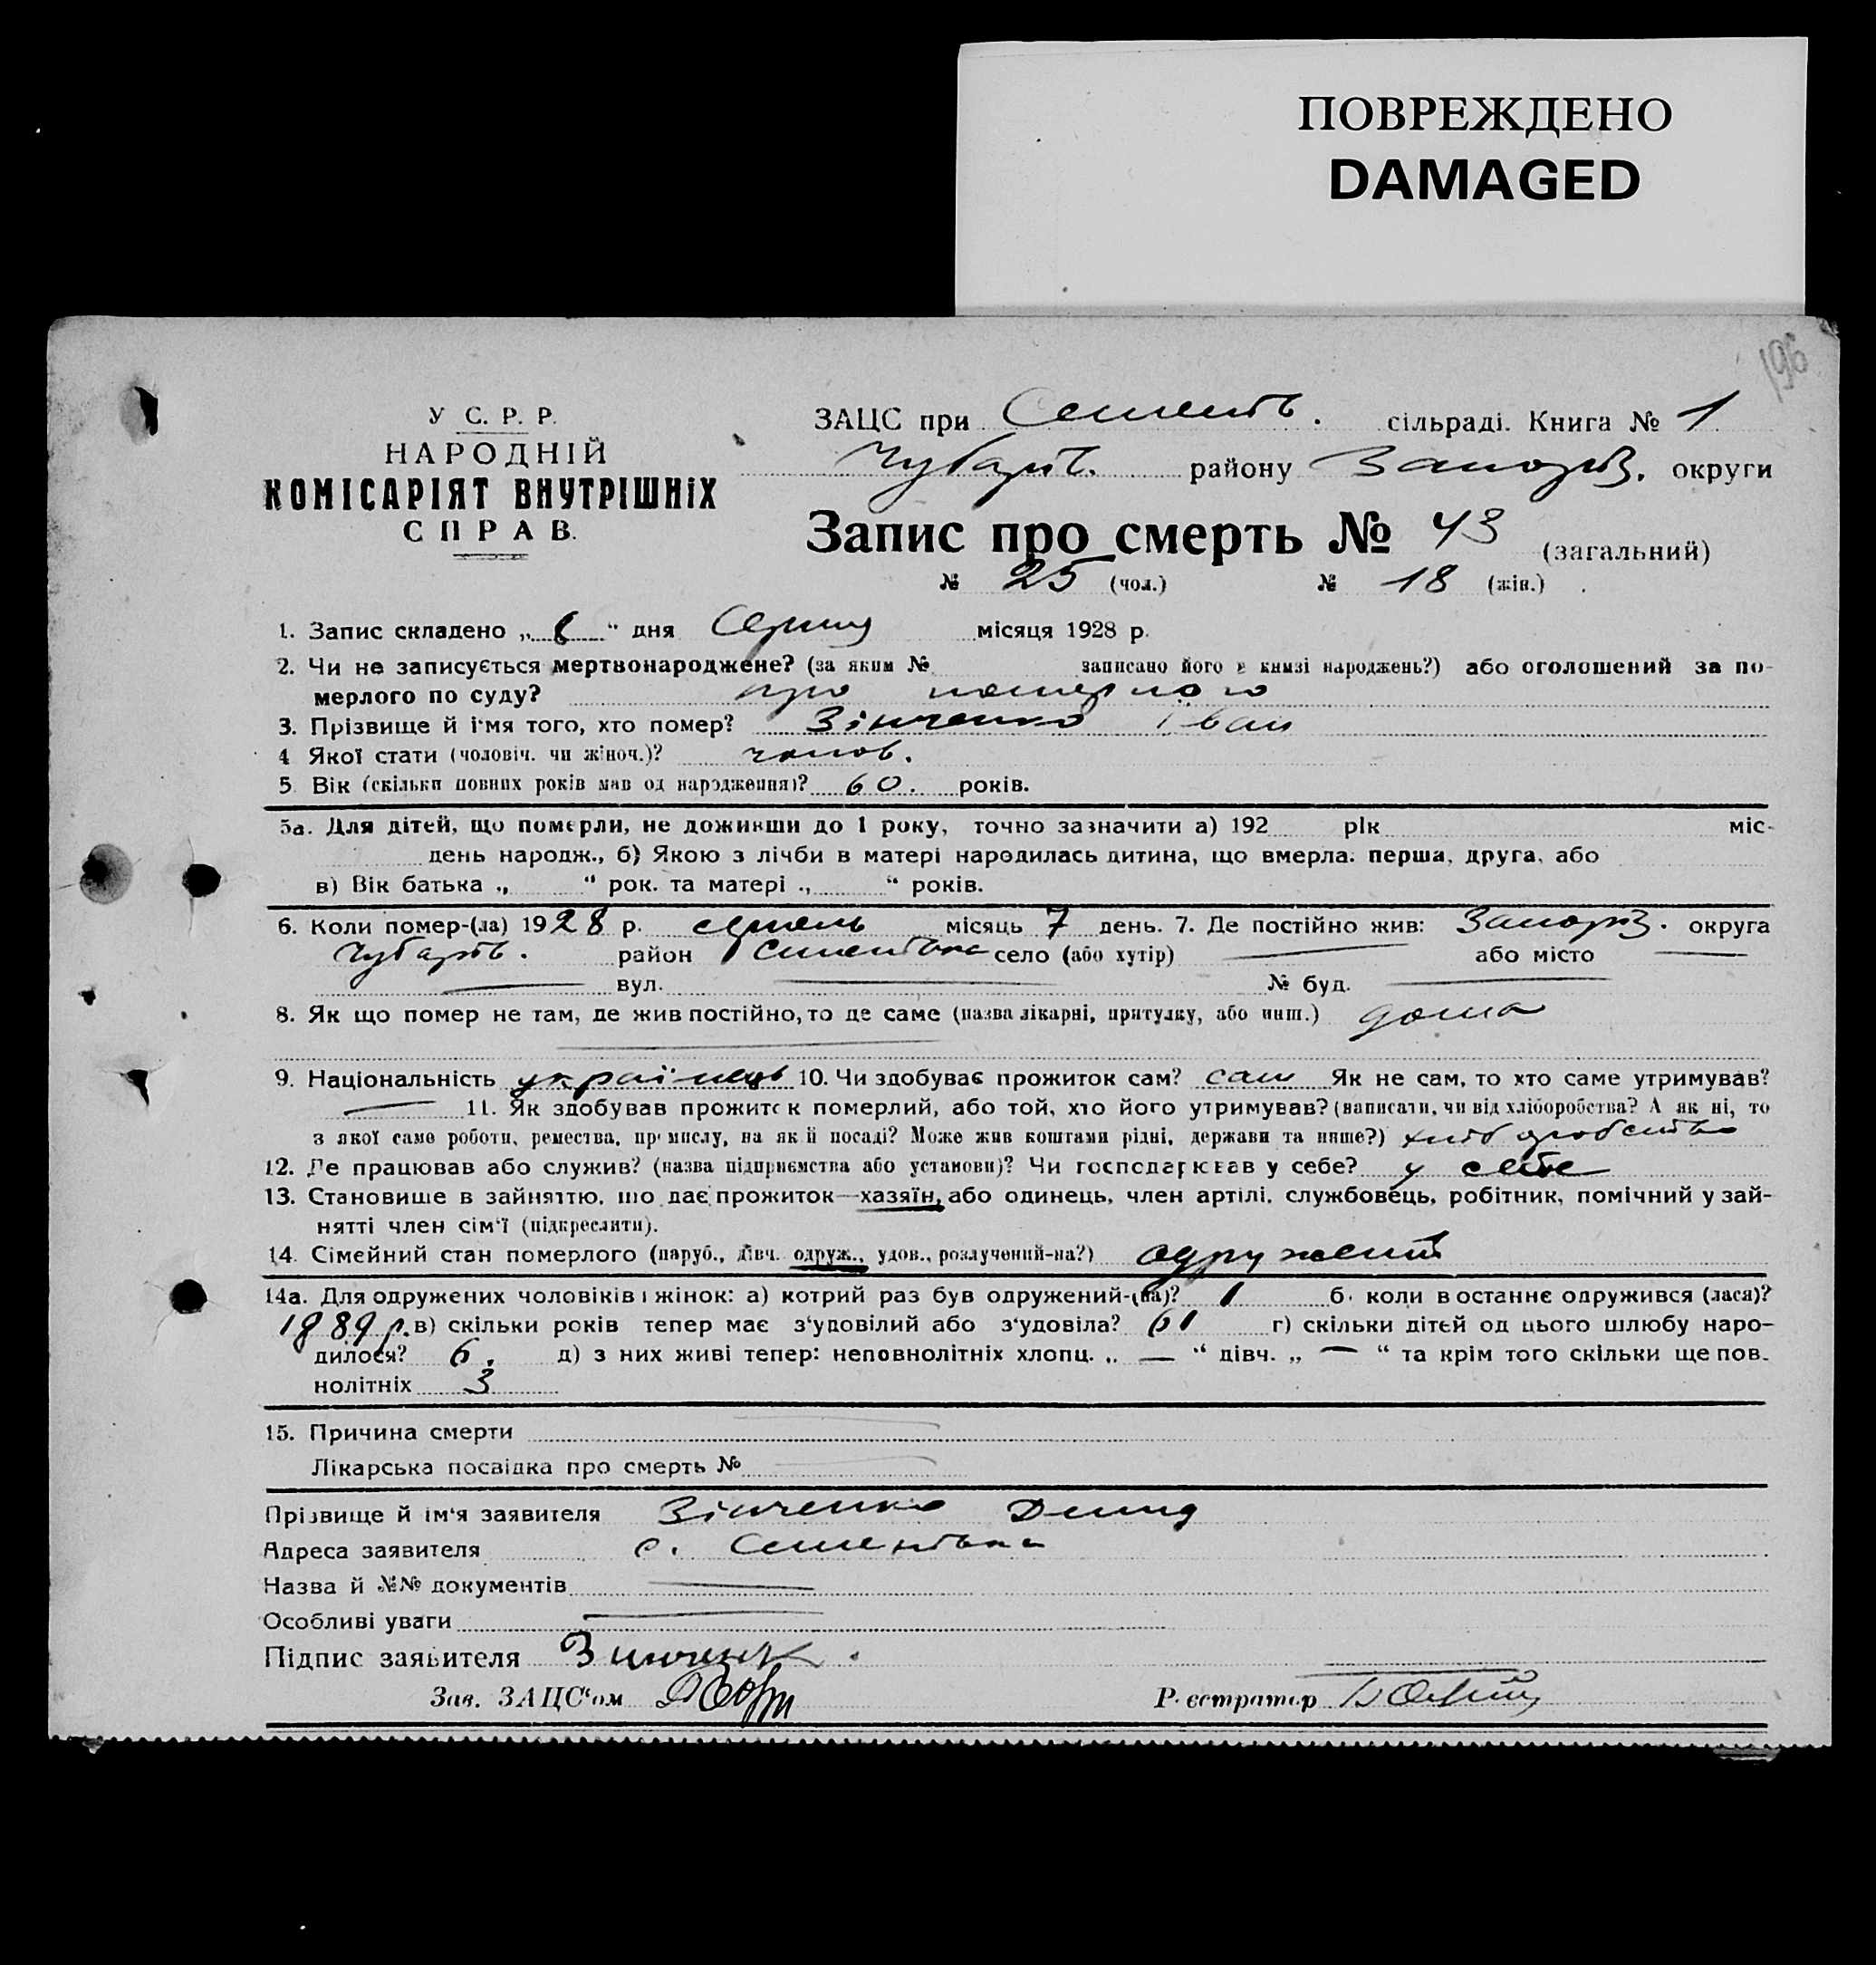 ПОВРЕЖДЕНО
DAMAGED
196
У С. Р. Р.
НАРОДНІЙ
КОМІСАРІЯТ ВНУТРІШНІХ
СПРАВ.
ЗАЦС при Сементв. сільраді. Книга № 1
Чубарів. району Запоріз. округи
Запис про смерть № 43 (загальний)
№ 25 (чол.) № 18 (жін.)
1. Запис складено „ “ дня Серпня місяця 1928 р.
2. Чи не записується мертвонароджене? (за яким № записано його в книзі народжень?) або оголошений за по-
мерлого по суду? про померлого
3. Прізвище й ім'я того, хто помер? Зінченко Іван
4 Якої стати (чоловіч. чи жіноч.)? чолов.
5. Вік (скільки повних років мав од народження)? 60. років.
5а. Для дітей, що померли, не доживши до 1 року, точно зазначити а) 192 рік міс-
день народж., б) Якою з лічби в матері народилась дитина, що вмерла: перша, друга, або
в) Вік батька „ “ рок. та матері „ “ років.
6. Коли помер-(ла) 1928 р. серпень місяць 7 день. 7. Де постійно жив: Запоріз. округа
Чубарів. район Сементівка село (або хутір) — або місто —
— вул. — № буд. —
8. Як що помер не там, де жив постійно, то де саме (назва лікарні, притулку, або инш.) дома
9. Національність українець 10. Чи здобуває прожиток сам? сам Як не сам, то хто саме утримував?
— 11. Як здобував прожиток померлий, або той, хто його утримував? (написати, чи від хліборобства? А як ні, то
з якої саме роботи, ремества, промислу, на якій посаді? Може жив коштами рідні, держави та инше?) хліборобство
12. Де працював або служив? (назва підприємства або установи)? Чи господарював у себе? у себе
13. Становище в зайняттю, що дає прожиток—хазяїн, або одинець, член артілі, службовець, робітник, помічний у зай-
нятті член сім'ї (підкреслити).
14. Сімейний стан померлого (паруб., дівч. одруж., удов., розлучений-на?) одружений
14а. Для одружених чоловіків і жінок: а) котрий раз був одружений-(на)? 1 б. коли в останнє одружився (лася)?
1889 р. в) скільки років тепер має з'удовілий або з'удовіла? 61 г) скільки дітей од цього шлюбу наро-
дилося? 6. д) з них живі тепер: неповнолітніх хлопц. „ — “ дівч. „ — “ та крім того скільки ще пов-
нолітніх 3
15. Причина смерти —
Лікарська посвідка про смерть № —
Прізвище й ім'я заявителя Зінченко Демид
Адреса заявителя с. Сементівка
Назва й №№ документів —
Особливі уваги —
Підпис заявителя Зинченк
Зав. ЗАЦС'ом
Реєстратор